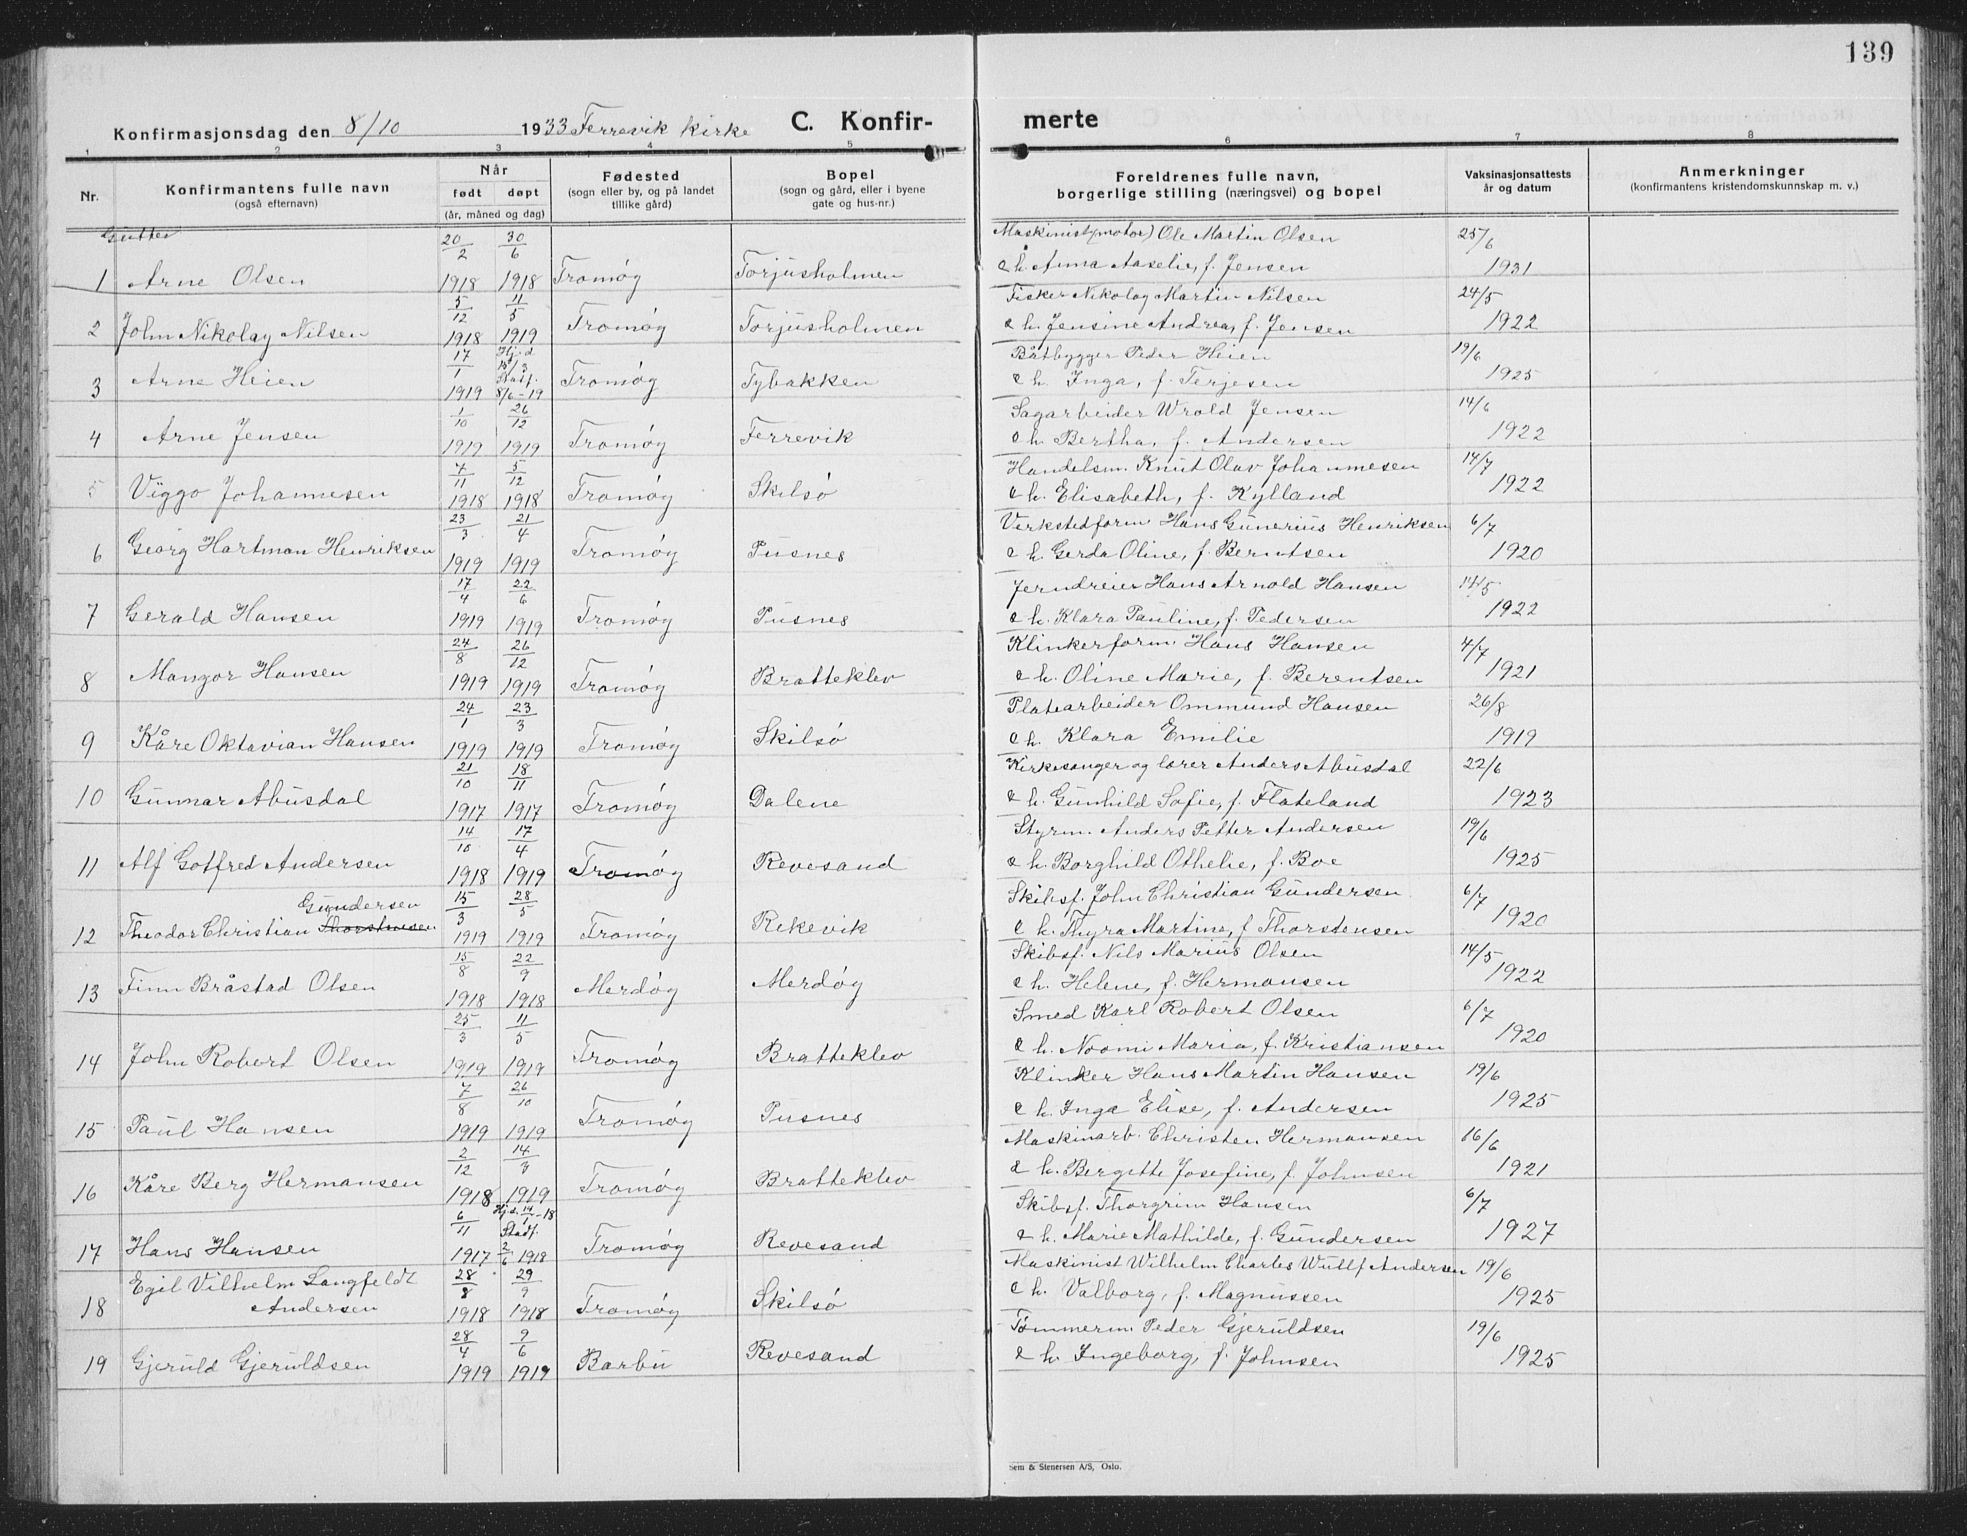 139
Konfirmasjonsdag den 8/10 1933 Ferrevik kirke C. Konfir- merte
1 2 3 4 5 6 7 8
Nr. Konfirmantens fulle navn (også efternavn) Når født døpt (år, måned og dag) Fødested (sogn eller by, og på landet tillike gård) Bopel (sogn og gård, eller i byene gate og hus-nr.) Foreldrenes fulle navn, borgerlige stilling (næringsvei) og bopel Vaksinasjonsattests år og datum Anmerkninger (konfirmantens kristendomskunnskap m. v.)
Gutter
1 Arne Olsen 20/2 1918 30/6 1918 Tromøy Torjusholmen Maskinist (motor) Ole Martin Olsen & h. Anna Aaselie, f. Jensen 25/6 1931
2 John Nikolay Nilsen 5/12 1918 11/5 1919 Tromøy Torjusholmen Fisker Nikolay Martin Nilsen & h. Jensine Andrea, f. Jensen 24/5 1922
3 Arne Heien 17/1 1919 Hj.d. 15/3 Stadf. 8/6-19 Tromøy Tybakken Båtbygger Peder Heien & h. Inga, f. Terjesen 19/6 1925
4 Arne Jensen 1/10 1919 26/12 1919 Tromøy Ferrevik Sagarbeider Wrold Jensen & h. Bertha, f. Andersen 14/6 1922
5 Viggo Johannesen 7/11 1918 5/12 1918 Tromøy Skilsø Handelsm. Knut Olav Johannesen & h. Elisabeth, f. Kylland 14/7 1922
6 Georg Hartman Henriksen 23/3 1919 21/4 1919 Tromøy Pusnes Verkstedform. Hans Gunerius Henriksen & h. Gerda Oline, f. Berntsen 6/7 1920
7 Gerald Hansen 17/4 1919 22/6 1919 Tromøy Pusnes Jerndreier Hans Arnold Hansen & h. Klara Pauline, f. Pedersen 14/5 1922
8 Mangor Hansen 24/8 1919 26/12 1919 Tromøy Bratteklev Klinkerform. Hans Hansen & h. Oline Marie, f. Berentsen 4/7 1921
9 Kåre Oktavian Hansen 24/1 1919 23/3 1919 Tromøy Skilsø Platearbeider Ommund Hansen & h. Klara Emilie 26/8 1919
10 Gunnar Abusdal 21/10 1917 18/11 1917 Tromøy Dalene Kirkesanger og lærer Anders Abusdal & h. Gunhild Sofie, f. Flateland 22/6 1923
11 Alf Gotfred Andersen 14/10 1918 17/4 1919 Tromøy Revesand Styrm. Anders Petter Andersen & h. Borghild Othelie, f. Boe 19/6 1925
12 Theodor Christian Thorstensen Gundersen 15/3 1919 28/5 1919 Tromøy Rekevik Skibsf. John Christian Gundersen & h. Thyra Martine, f. Thorstensen 6/7 1920
13 Finn Bråstad Olsen 15/8 1918 22/9 1918 Merdøy Merdøy Skibsf. Nils Marius Olsen & h. Helene, f. Hermansen 14/5 1922
14 John Robert Olsen 25/3 1919 11/5 1919 Tromøy Bratteklev Smed Karl Robert Olsen & h. Noomi Maria, f. Kristiansen 6/7 1920
15 Paul Hansen 7/8 1919 26/10 1919 Tromøy Pusnes Klinker Hans Martin Hansen & h. Inga Elise, f. Andersen 19/6 1925
16 Kåre Berg Hermansen 2/12 1918 14/3 1919 Tromøy Bratteklev Maskinarb. Christen Hermansen & h. Bergitte Josefine, f. Johnsen 16/6 1921
17 Hans Hansen 6/11 1917 Hj.d. 14/1-18 Stadf. 2/6 1918 Tromøy Revesand Skibsf. Thorgrim Hansen & h. Marie Mathilde, f. Gundersen 6/7 1927
18 Egil Vilhelm Langfeldt Andersen 28/8 1918 29/9 1918 Tromøy Skilsø Maskinist Wilhelm Charles Wulff Andersen & h. Valborg, f. Magnussen 19/6 1925
19 Gjeruld Gjeruldsen 28/4 1919 9/6 1919 Barbu Revesand Tømmerm. Peder Gjeruldsen & h. Ingeborg, f. Johnsen 19/6 1925
Sem & Stenersen A/S, Oslo.